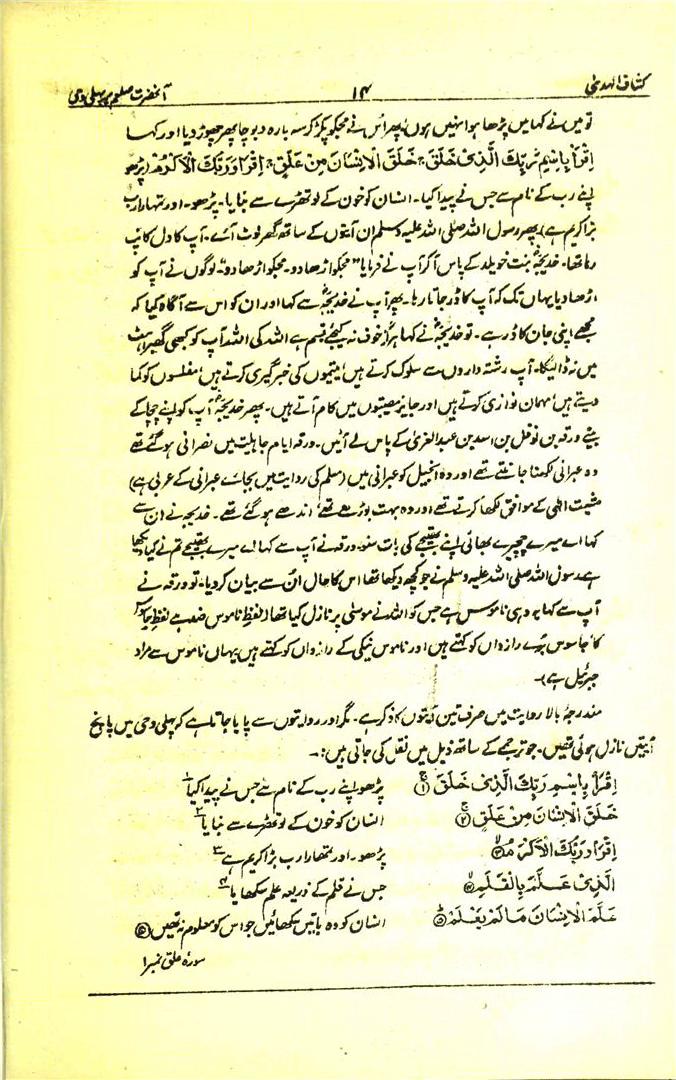 کشاف الہدیٰ
۱۴
آنحضرت صلعم پر پہلی وحی
تو میں نے کہا میں پڑھا ہوا نہیں ہوں، پھر اس نے مجکو پکڑ کر سہ بارہ دبوچا پھر چھوڑ دیا اور کہا
اِقْرَاْ بِاسْمِ رَبِّكَ الَّذِیْ خَلَقَ ۚ خَلَقَ الْاِنْسَانَ مِنْ عَلَقٍ ۚ اِقْرَاْ وَرَبُّكَ الْاَكْرَمُ (پڑھو
اپنے رب کے نام سے جس نے پیدا کیا۔ انسان کو خون کے لوتھڑے سے بنایا۔ پڑھو۔ اور تمہارا رب
بڑا کریم ہے) پھر رسول اللہ صلی اللہ علیہ وسلم ان آیتوں کے ساتھ گھر لوٹ آئے۔ آپ کا دل کانپ
رہا تھا۔ خدیجہؓ بنت خویلد کے پاس آ کر آپ نے فرمایا "مجکو اڑھا دو۔ مجکو اڑھا دو" لوگوں نے آپ کو
اڑھا دیا یہاں تک کہ آپ کا ڈر جاتا رہا۔ پھر آپ نے خدیجہؓ سے کہا اور ان کو اس سے آگاہ کیا کہ
مجھے اپنی جان کا ڈر ہے۔ تو خدیجہؓ نے کہا ہرگز خوف نہ کیجئے قسم ہے اللہ کی اللہ آپ کو کبھی گھبراہٹ
میں نہ ڈالیگا۔ آپ رشتہ داروں سے سلوک کرتے ہیں، یتیموں کی خبر گیری کرتے ہیں، مفلسوں کو کما
دیتے ہیں، مہمان نوازی کرتے ہیں اور جایز مصیبتوں میں کام آتے ہیں۔ پھر خدیجہؓ آپ کو اپنے چچا کے
بیٹے ورقہ بن نوفل بن اسد بن عبدالعزیٰ کے پاس لے آئیں۔ ورقہ ایام جاہلیت میں نصرانی ہو گئے تھے
وہ عبرانی لکھنا جانتے تھے اور وہ انجیل کو عبرانی میں (مسلم کی روایت میں بجائے عبرانی کے عربی ہے)
مشیت الٰہی کے موافق لکھا کرتے تھے اور وہ بہت بوڑھے تھے، اندھے ہو گئے تھے۔ خدیجہ نے ان سے
کہا اے میرے چچیرے بھائی اپنے بھتیجے کی بات سنو۔ ورقہ نے آپ سے کہا اے میرے بھتیجے تم نے کیا دیکھا
ہے رسول اللہ صلی اللہ علیہ وسلم نے جو کچھ دیکھا تھا اس کا حال ان سے بیان کر دیا۔ تو ورقہ نے
آپ سے کہا یہ وہی ناموس ہے جس کو اللہ نے موسیٰ پر نازل کیا تھا (لفظ ناموس ضد ہے لفظ جاسوس
کا جاسوس برے رازداں کو کہتے ہیں اور ناموس نیکی کے رازداں کو کہتے ہیں یہاں ناموس سے مراد
جبرئیل ہے)۔
مندرجہ بالا روایت میں صرف تین آیتوں کا ذکر ہے۔ مگر اور روایتوں سے پایا جاتا ہے کہ پہلی وحی میں پانچ
آیتیں نازل ہوئی تھیں۔ جو ترجمے کے ساتھ ذیل میں نقل کی جاتی ہیں:۔
اِقْرَاْ بِاسْمِ رَبِّكَ الَّذِیْ خَلَقَ ۚ ۱ پڑھو اپنے رب کے نام سے جس نے پیدا کیا ۱
خَلَقَ الْاِنْسَانَ مِنْ عَلَقٍ ۚ ۲ انسان کو خون کے لوتھڑے سے بنایا ۲
اِقْرَاْ وَرَبُّكَ الْاَكْرَمُ ۙ ۳ پڑھو۔ اور تمھارا رب بڑا کریم ہے ۳
الَّذِیْ عَلَّمَ بِالْقَلَمِ ۙ ۴ جس نے قلم کے ذریعہ علم سکھایا ۴
عَلَّمَ الْاِنْسَانَ مَا لَمْ يَعْلَمْ ۵ انسان کو وہ باتیں سکھائیں جو اس کو معلوم نہ تھیں ۵
سورۂ علق نمبر ۱